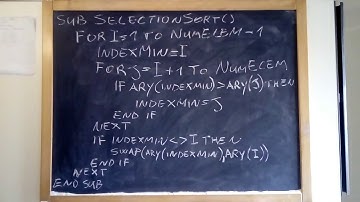 SUB SELECTIONSORT()
FOR I=1 TO NUMELEM-1
INDEXMIN=I
FOR J=I+1 TO NUMELEM
IF ARY(INDEXMIN)>ARY(J) THEN
INDEXMIN=J
END IF
NEXT
IF INDEXMIN<>I THEN
SWAP(ARY(INDEXMIN),ARY(I))
END IF
NEXT
END SUB